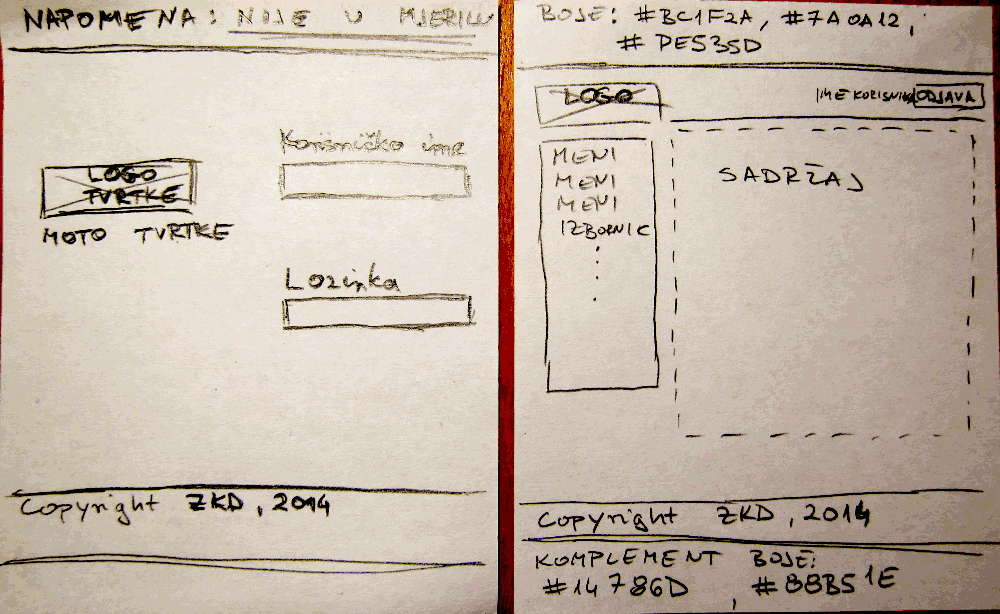 NAPOMENA: NIJE U MJERILU
LOGO
TVRTKE
MOTO TVRTKE
Korisničko ime
Lozinka
Copyright ZKD, 2014
BOJE: #BC1F2A, #7A0A12,
#DE535D
LOGO
IME KORISNIKA
ODJAVA
MENI
MENI
MENI
IZBORNIK
SADRŽAJ
Copyright ZKD, 2014
KOMPLEMENT BOJE:
#14786D, #88B51E